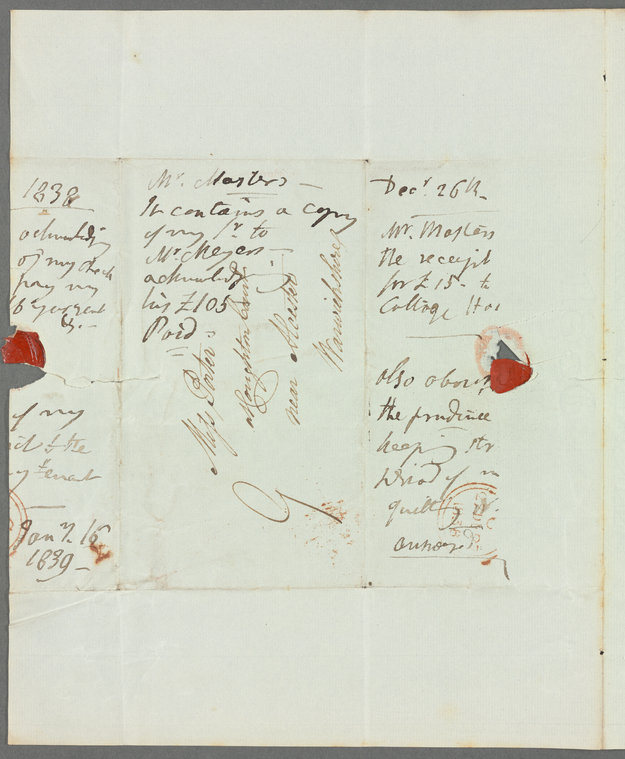 1838
acknowledg
of my check
pay my
&c. –
of my
to the
my tenant
Jany. 16
1839 –
Mr. Masters –
It contains a copy
of my Lr. to
Mr. Meyers –
acknowledg
his £105
Paid =
Miss Porter
near Alcester
Warwickshire
Decr. 26th.
Mr. Masters
the receipt
for £15 – to
College Hos
also about
the prudence
keeping str
period of m